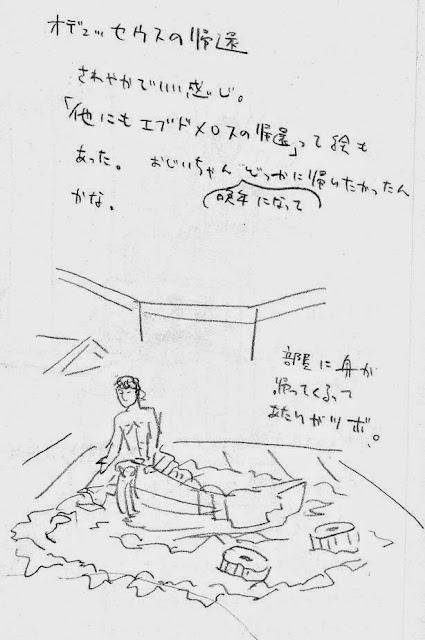 オデュッセウスの帰還
さわやかでいい感じ。
「他にもエブドメロスの帰還」って絵も
あった。おじいちゃんどっかに帰りたかったん
かな。
(晩年になって
部屋に舟が
帰ってくるって
あたりがツボ。